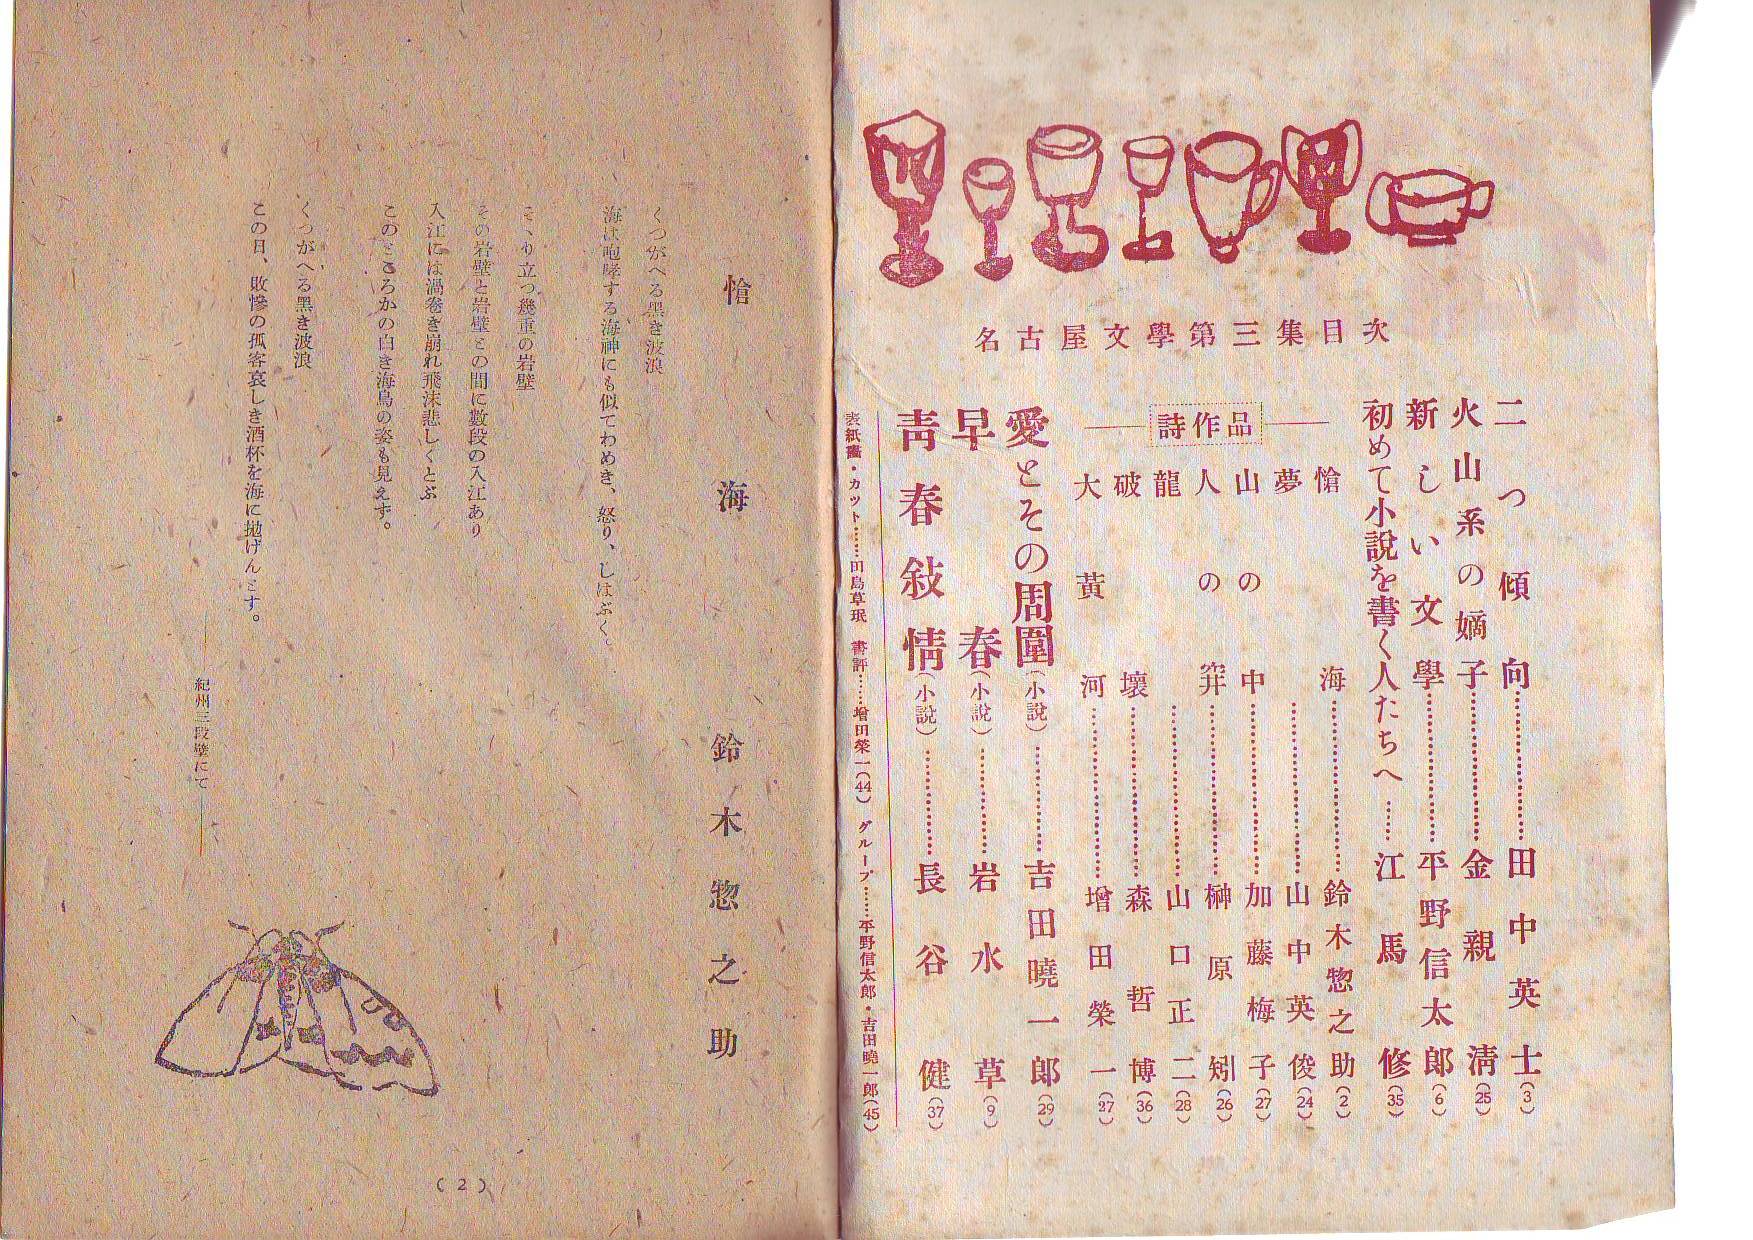 名古屋文學第三集目次
二つ傾向……………田中英士(3)
火山系の嫡子……………金親淸(25)
新しい文學……………平野信太郎(6)
初めて小說を書く人たちへ……江馬修(35)
詩作品
愴海……………鈴木惣之助(2)
夢……………山中英俊(24)
山の中……………加藤梅子(27)
人の穽……………榊原矧(26)
龍……………山口正二(28)
破壞……………森哲博(36)
大黃河……………增田榮一(27)
愛とその周圍(小說)……………吉田曉一郎(29)
早春(小說)……………岩水草(9)
靑春敍情(小說)……………長谷健(37)
表紙畫・カット……田島草珉 書評……增田榮一(44) グループ……平野信太郎・吉田曉一郎(45)
愴海 鈴木惣之助
くつがへる黑き波浪
海は咆哮する海神にも似てわめき、怒り、しはぶく。
そゝり立つ幾重の岩壁
その岩壁と岩壁との間に數段の入江あり
入江には渦卷き崩れ飛沫悲しくとぶ
このところかの白き海鳥の姿も見えず。
くつがへる黑き波浪
この日、敗慘の孤客哀しき酒杯を海に抛げんとす。
――紀州三段壁にて――
(2)